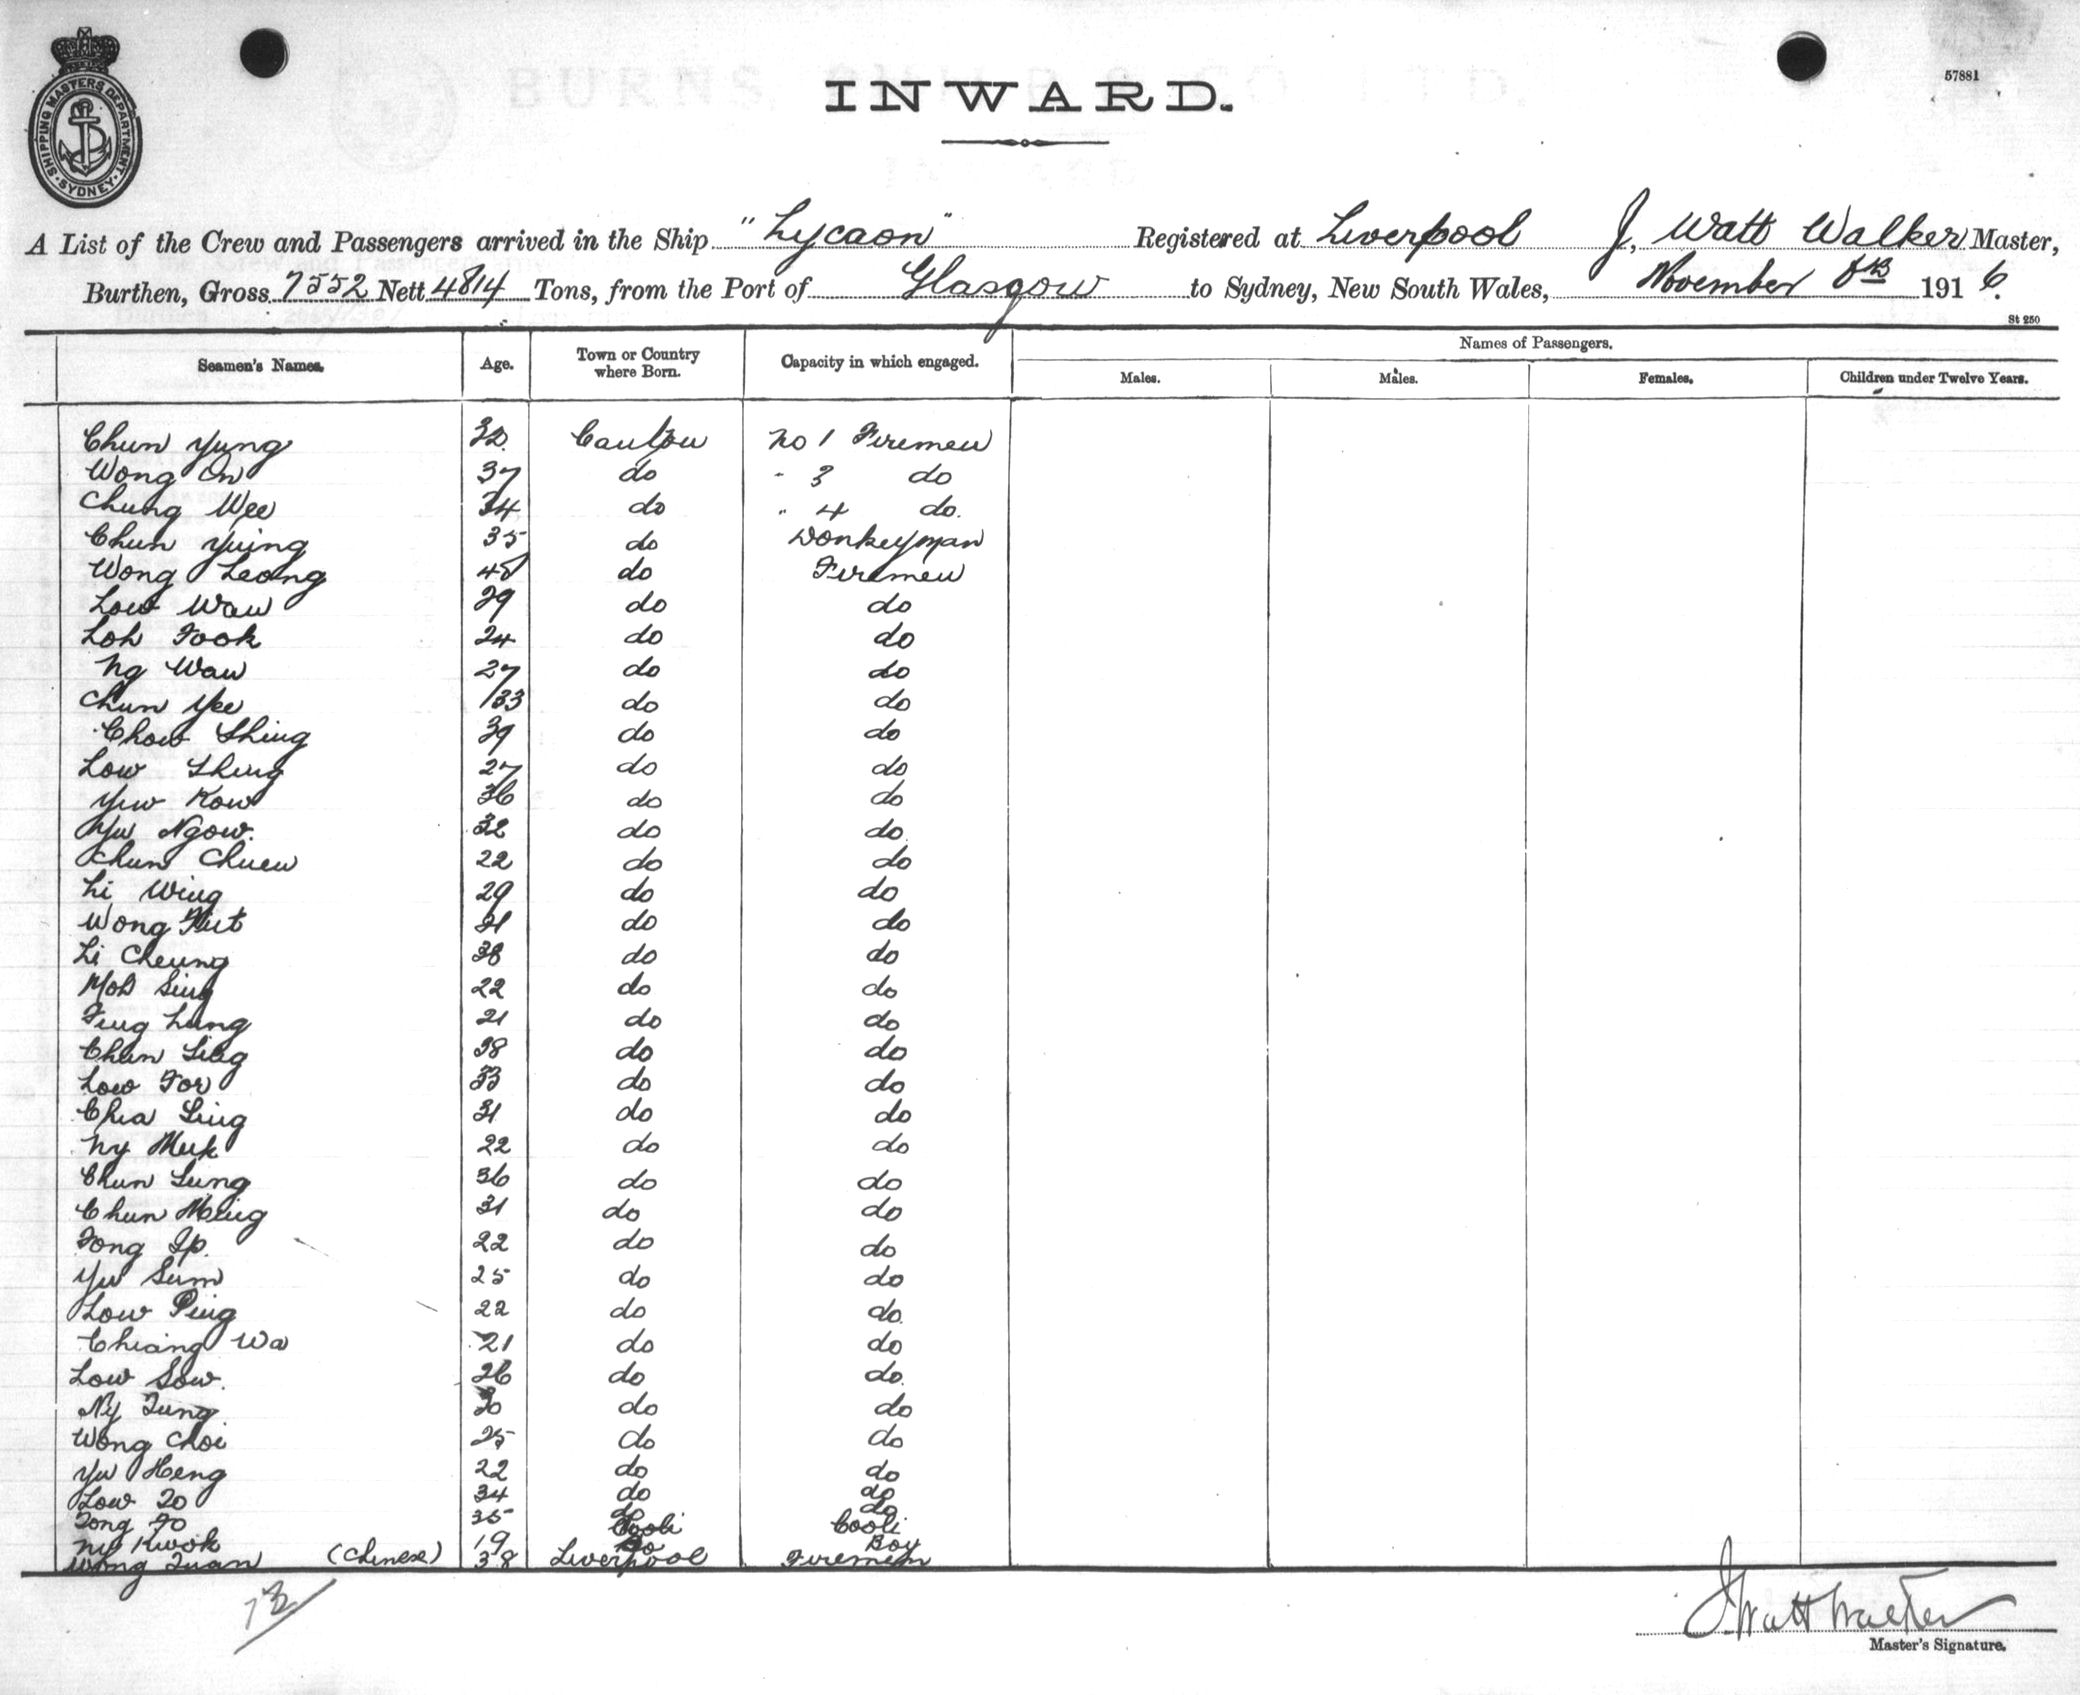 SHIPPING MASTERS DEPARTMENT · SYDNEY ·
57881
INWARD.
A List of the Crew and Passengers arrived in the Ship "Lycaon" Registered at Liverpool J. Watt Walker Master,
Burthen, Gross 7552 Nett 4814 Tons, from the Port of Glasgow to Sydney, New South Wales, November 8th 1916.
St 250
Seamen's Names. Age. Town or Country where Born. Capacity in which engaged. Names of Passengers.
Males. Males. Females. Children under Twelve Years.
Chun Yung 32 Canton No 1 Firemen
Wong On 37 do " 3 do
Chung Wee 34 do " 4 do.
Chun Yuing 35 do Donkeyman
Wong Leong 48 do Firemen
Low Wau 29 do do
Loh Fook 24 do do
Ng Wau 27 do do
Chun Yee 33 do do
Chow Shing 39 do do
Low Shing 27 do do
Yew Kow 36 do do
Yu Ngow. 32 do do.
Chun Chuen 22 do do
Li Wing 29 do do
Wong Fut 21 do do
Li Cheung 38 do do
Moh Sing 22 do do
Fung Lung 21 do do
Chun Sing 28 do do
Low For 33 do do
Chia Sing 31 do do
Ny Muk 22 do do
Chun Sung 36 do do
Chun Ming 31 do do
Fong Ip. 22 do do
Yu Sum 25 do do
Low Ping 22 do do.
Chiang Wa 21 do do
Low Sow. 26 do do.
Ny Tung 30 do do
Wong Choi 25 do do
Yu Heng 22 do do
Low To 34 do do
Tong Fo 35 do do
Cooli
Ny Kwok 19 do Boy
Wong Tuan (Chinese) 38 Liverpool Firemen
J Watt Walker
Master's Signature.